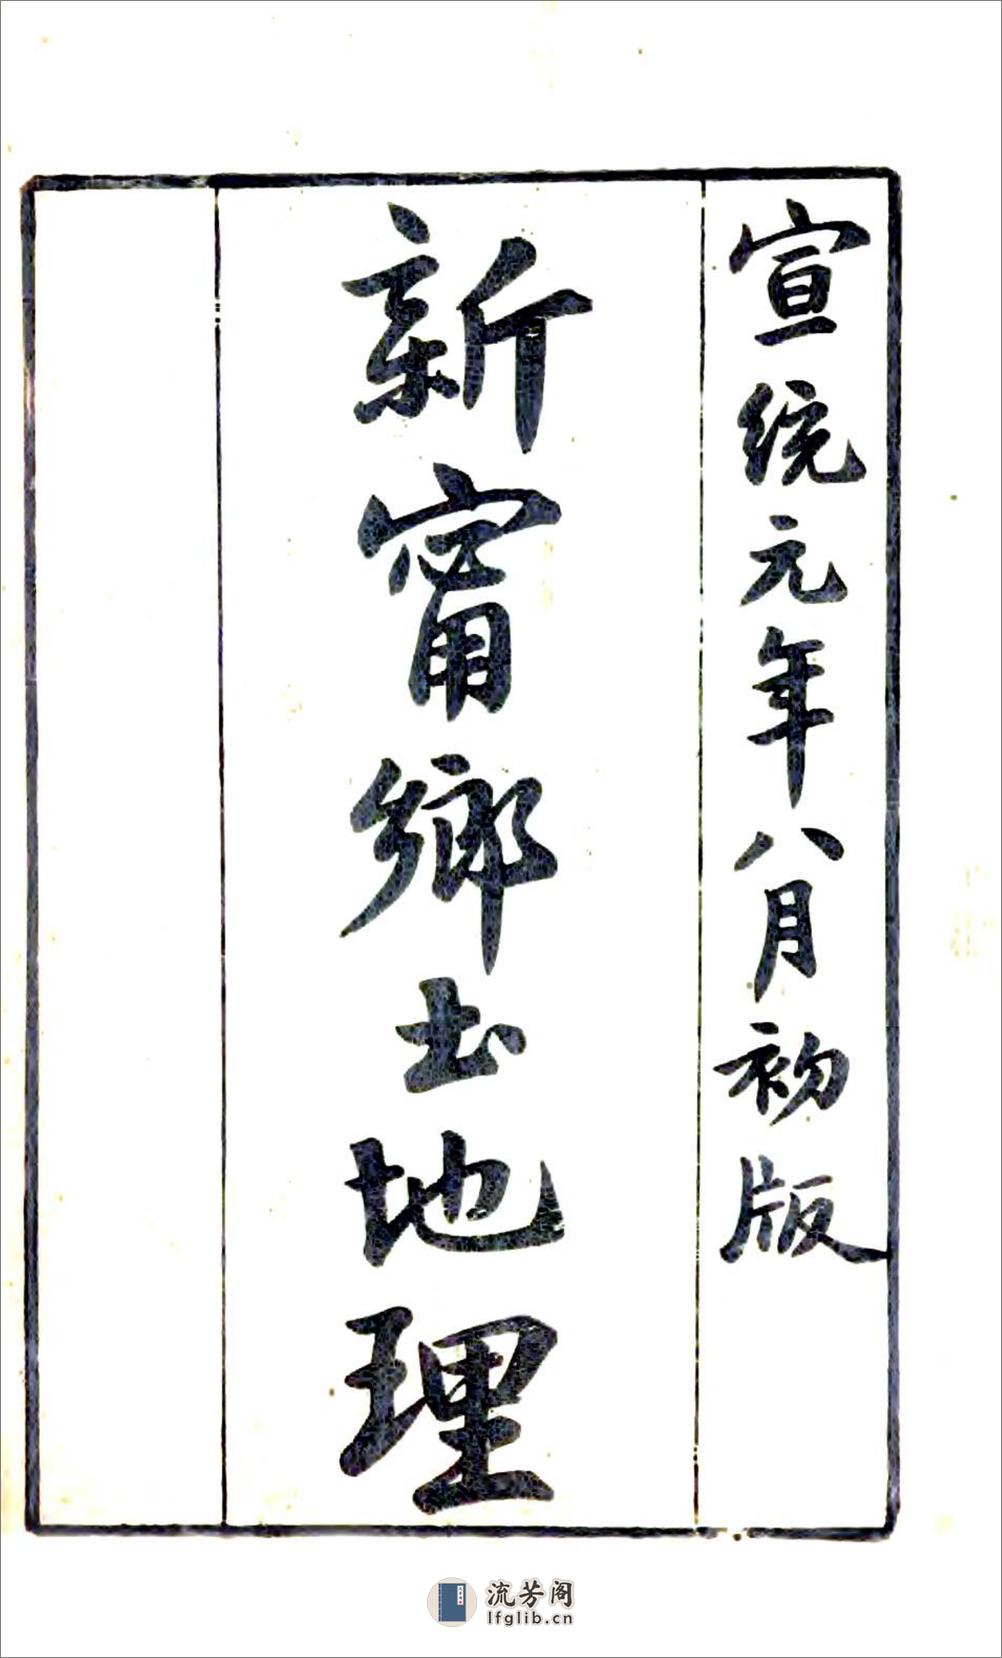 宣統元年八月初版
新甯鄉土地理
流芳阁
lfglib.cn